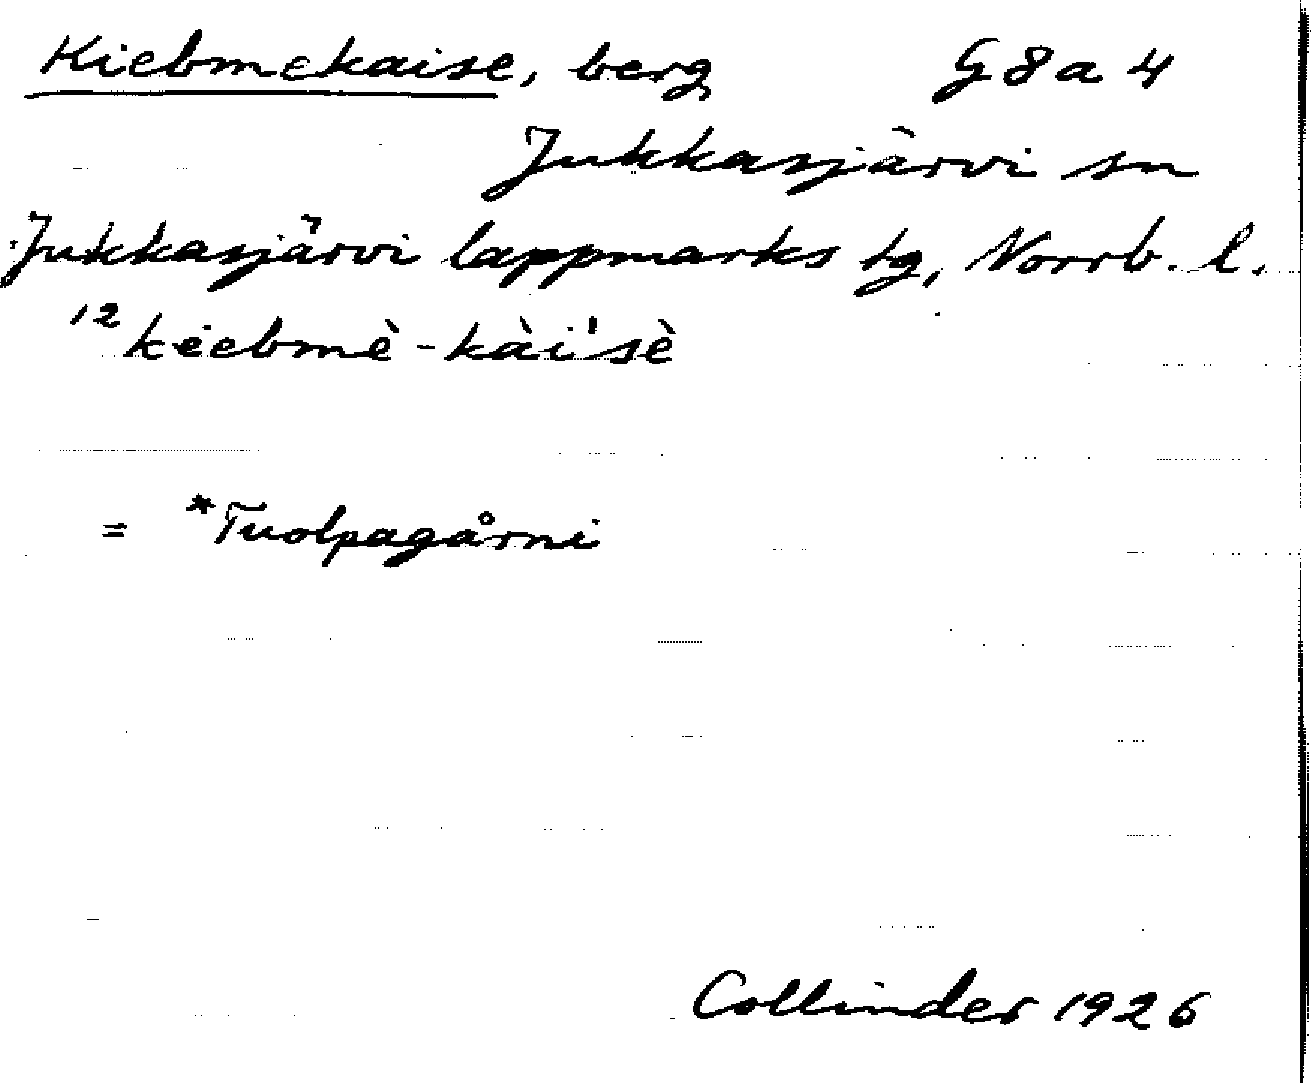 Kiebmekaise, berg G 8 a 4
Jukkasjärvi sn
Jukkasjärvi lappmarks tg, Norrb. l.
12 kiebmè-kài'sè
= *Tuolpagårni
Collinder 1926